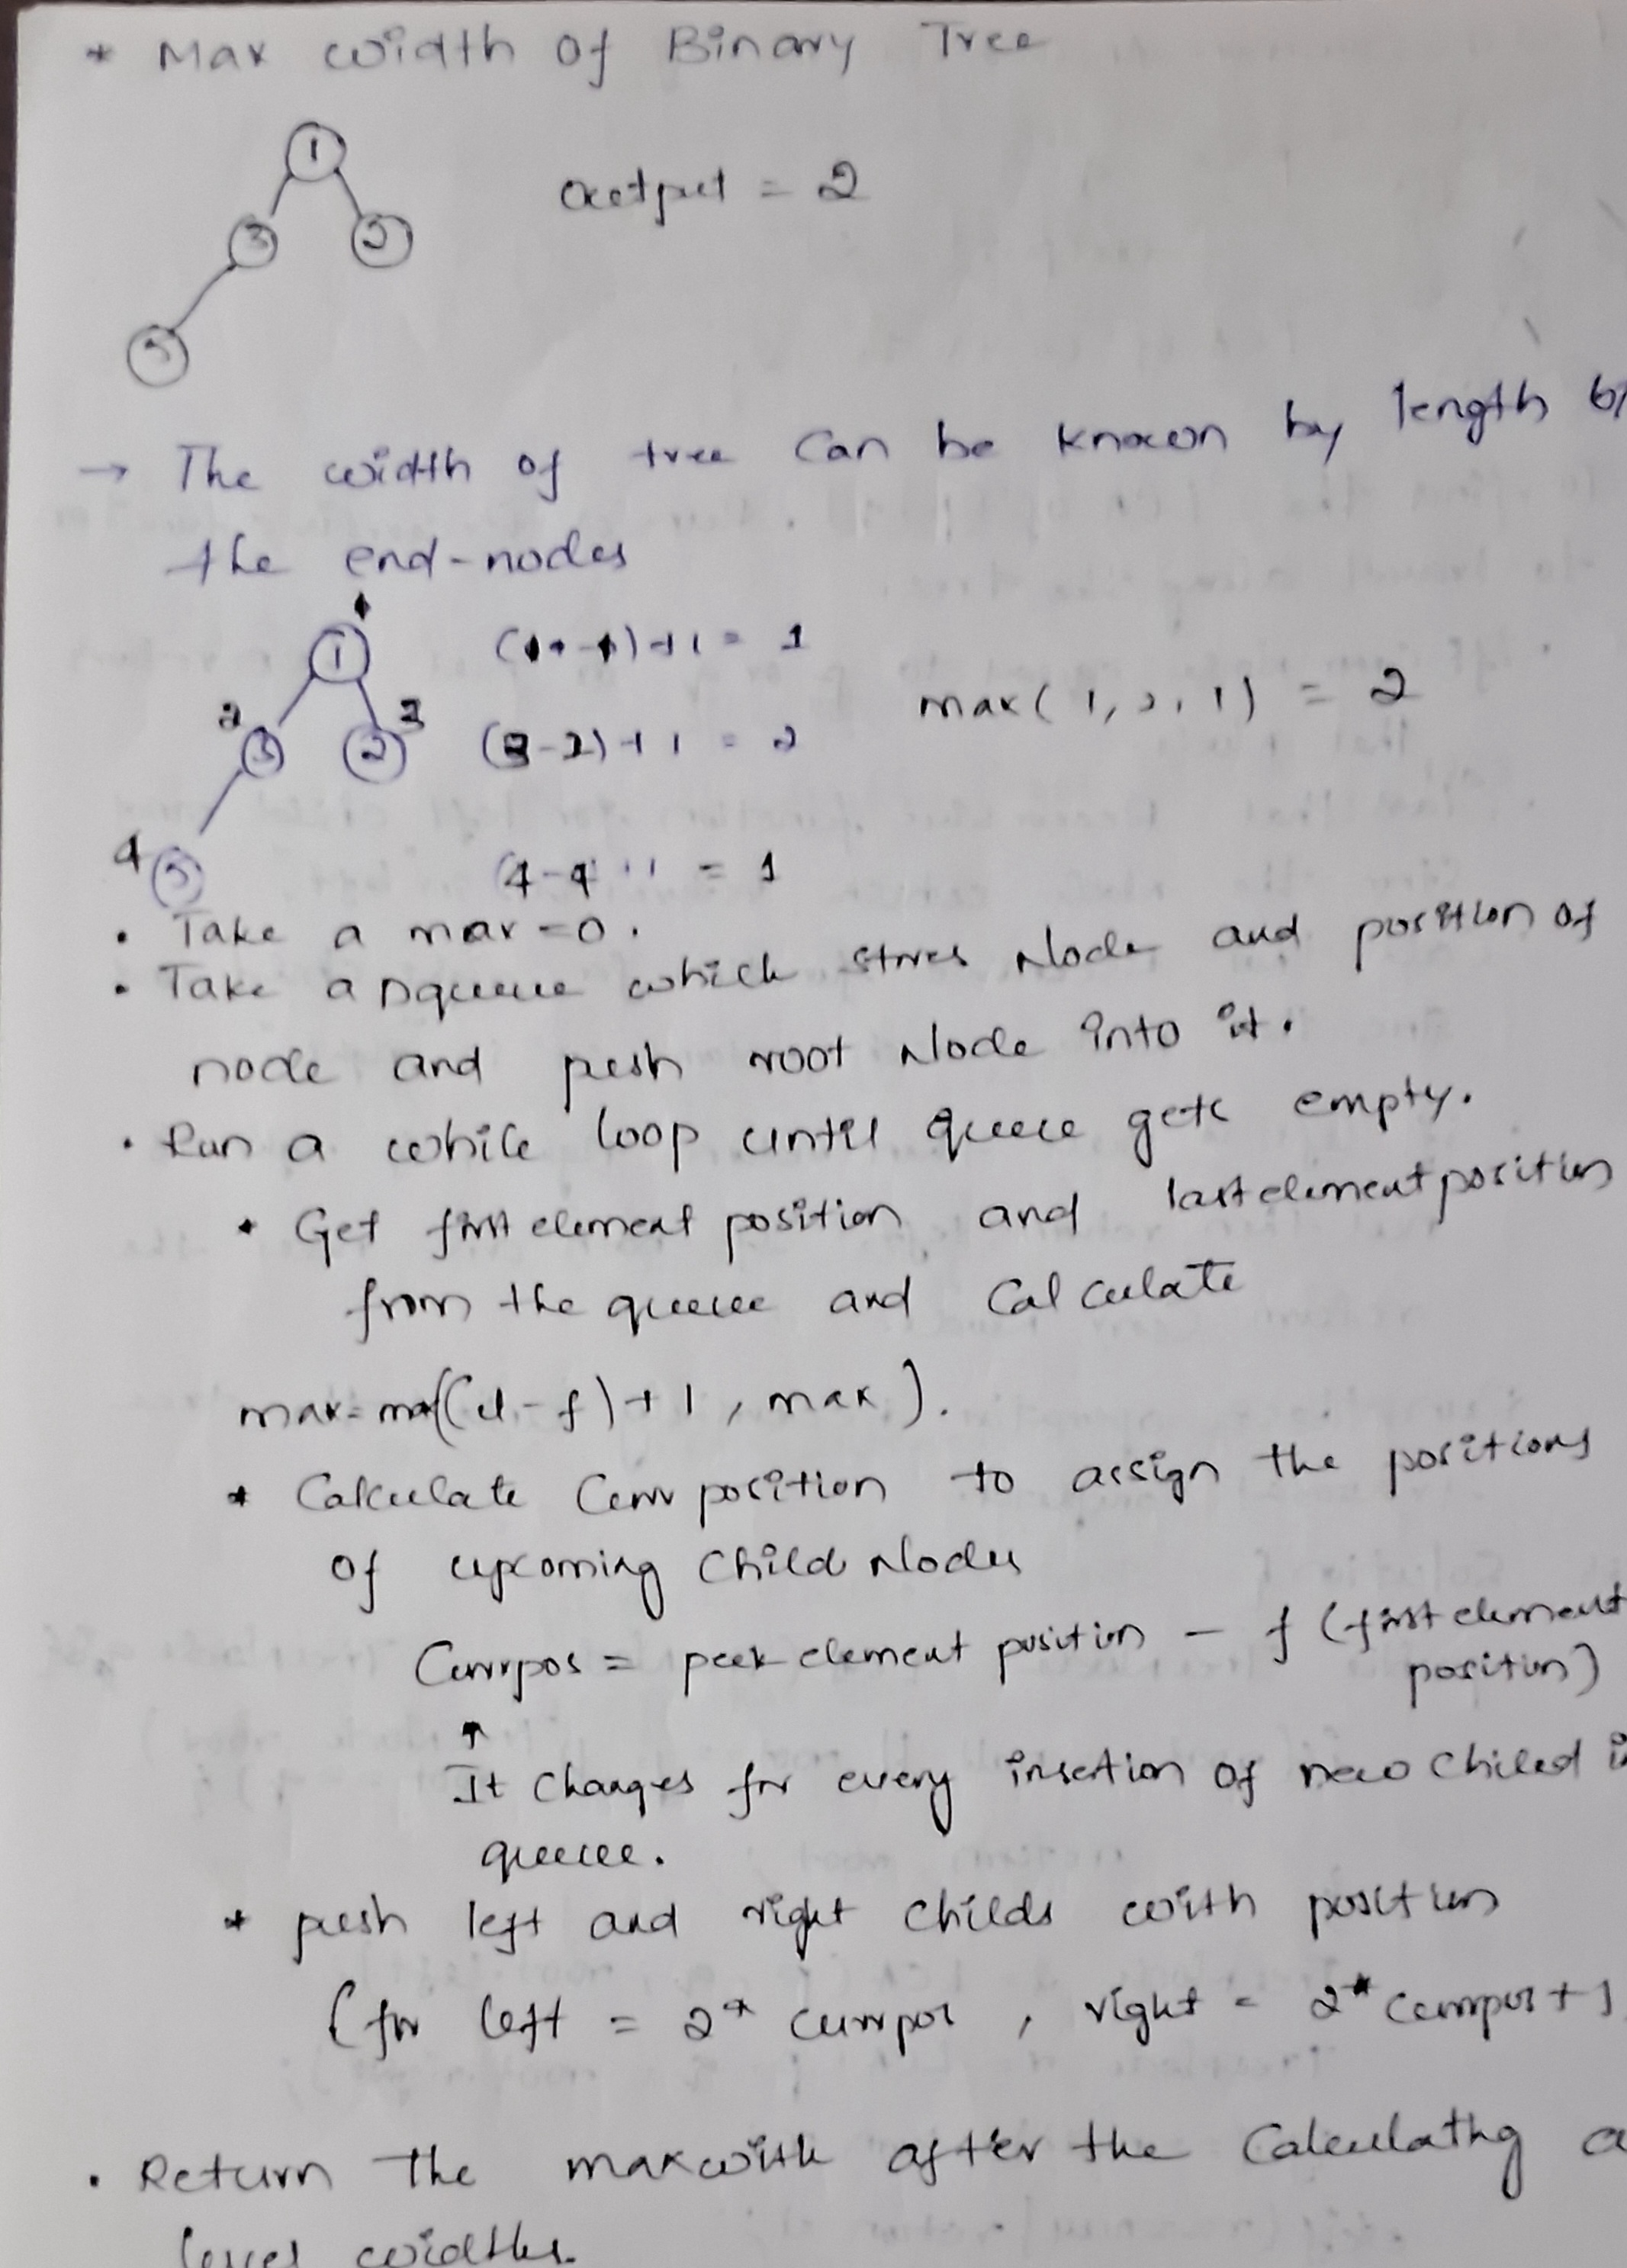 * Max width of Binary Tree
1
output = 2
3 2
5
→ The width of tree can be known by length b/
the end-nodes
1 (1-1)+1 = 1
2 3 max(1,2,1) = 2
3 2 (3-2)+1 = 2
4
5 (4-4 +1 = 1
• Take a max=0.
• Take a Dqueue which stores Node and position of
node and push root Node into it.
• Run a while loop until queue gets empty.
* Get first element position and last element position
from the queue and calculate
max=max((l-f)+1, max).
* Calculate Curr position to assign the positions
of upcoming child Nodes
Currpos = peek element position - f (first element
position)
↑
It changes for every insertion of new child in
queue.
* push left and right childs with position
(for left = 2* currpos, right = 2* currpos+1
• Return the maxwith after the calculating a
level widths.